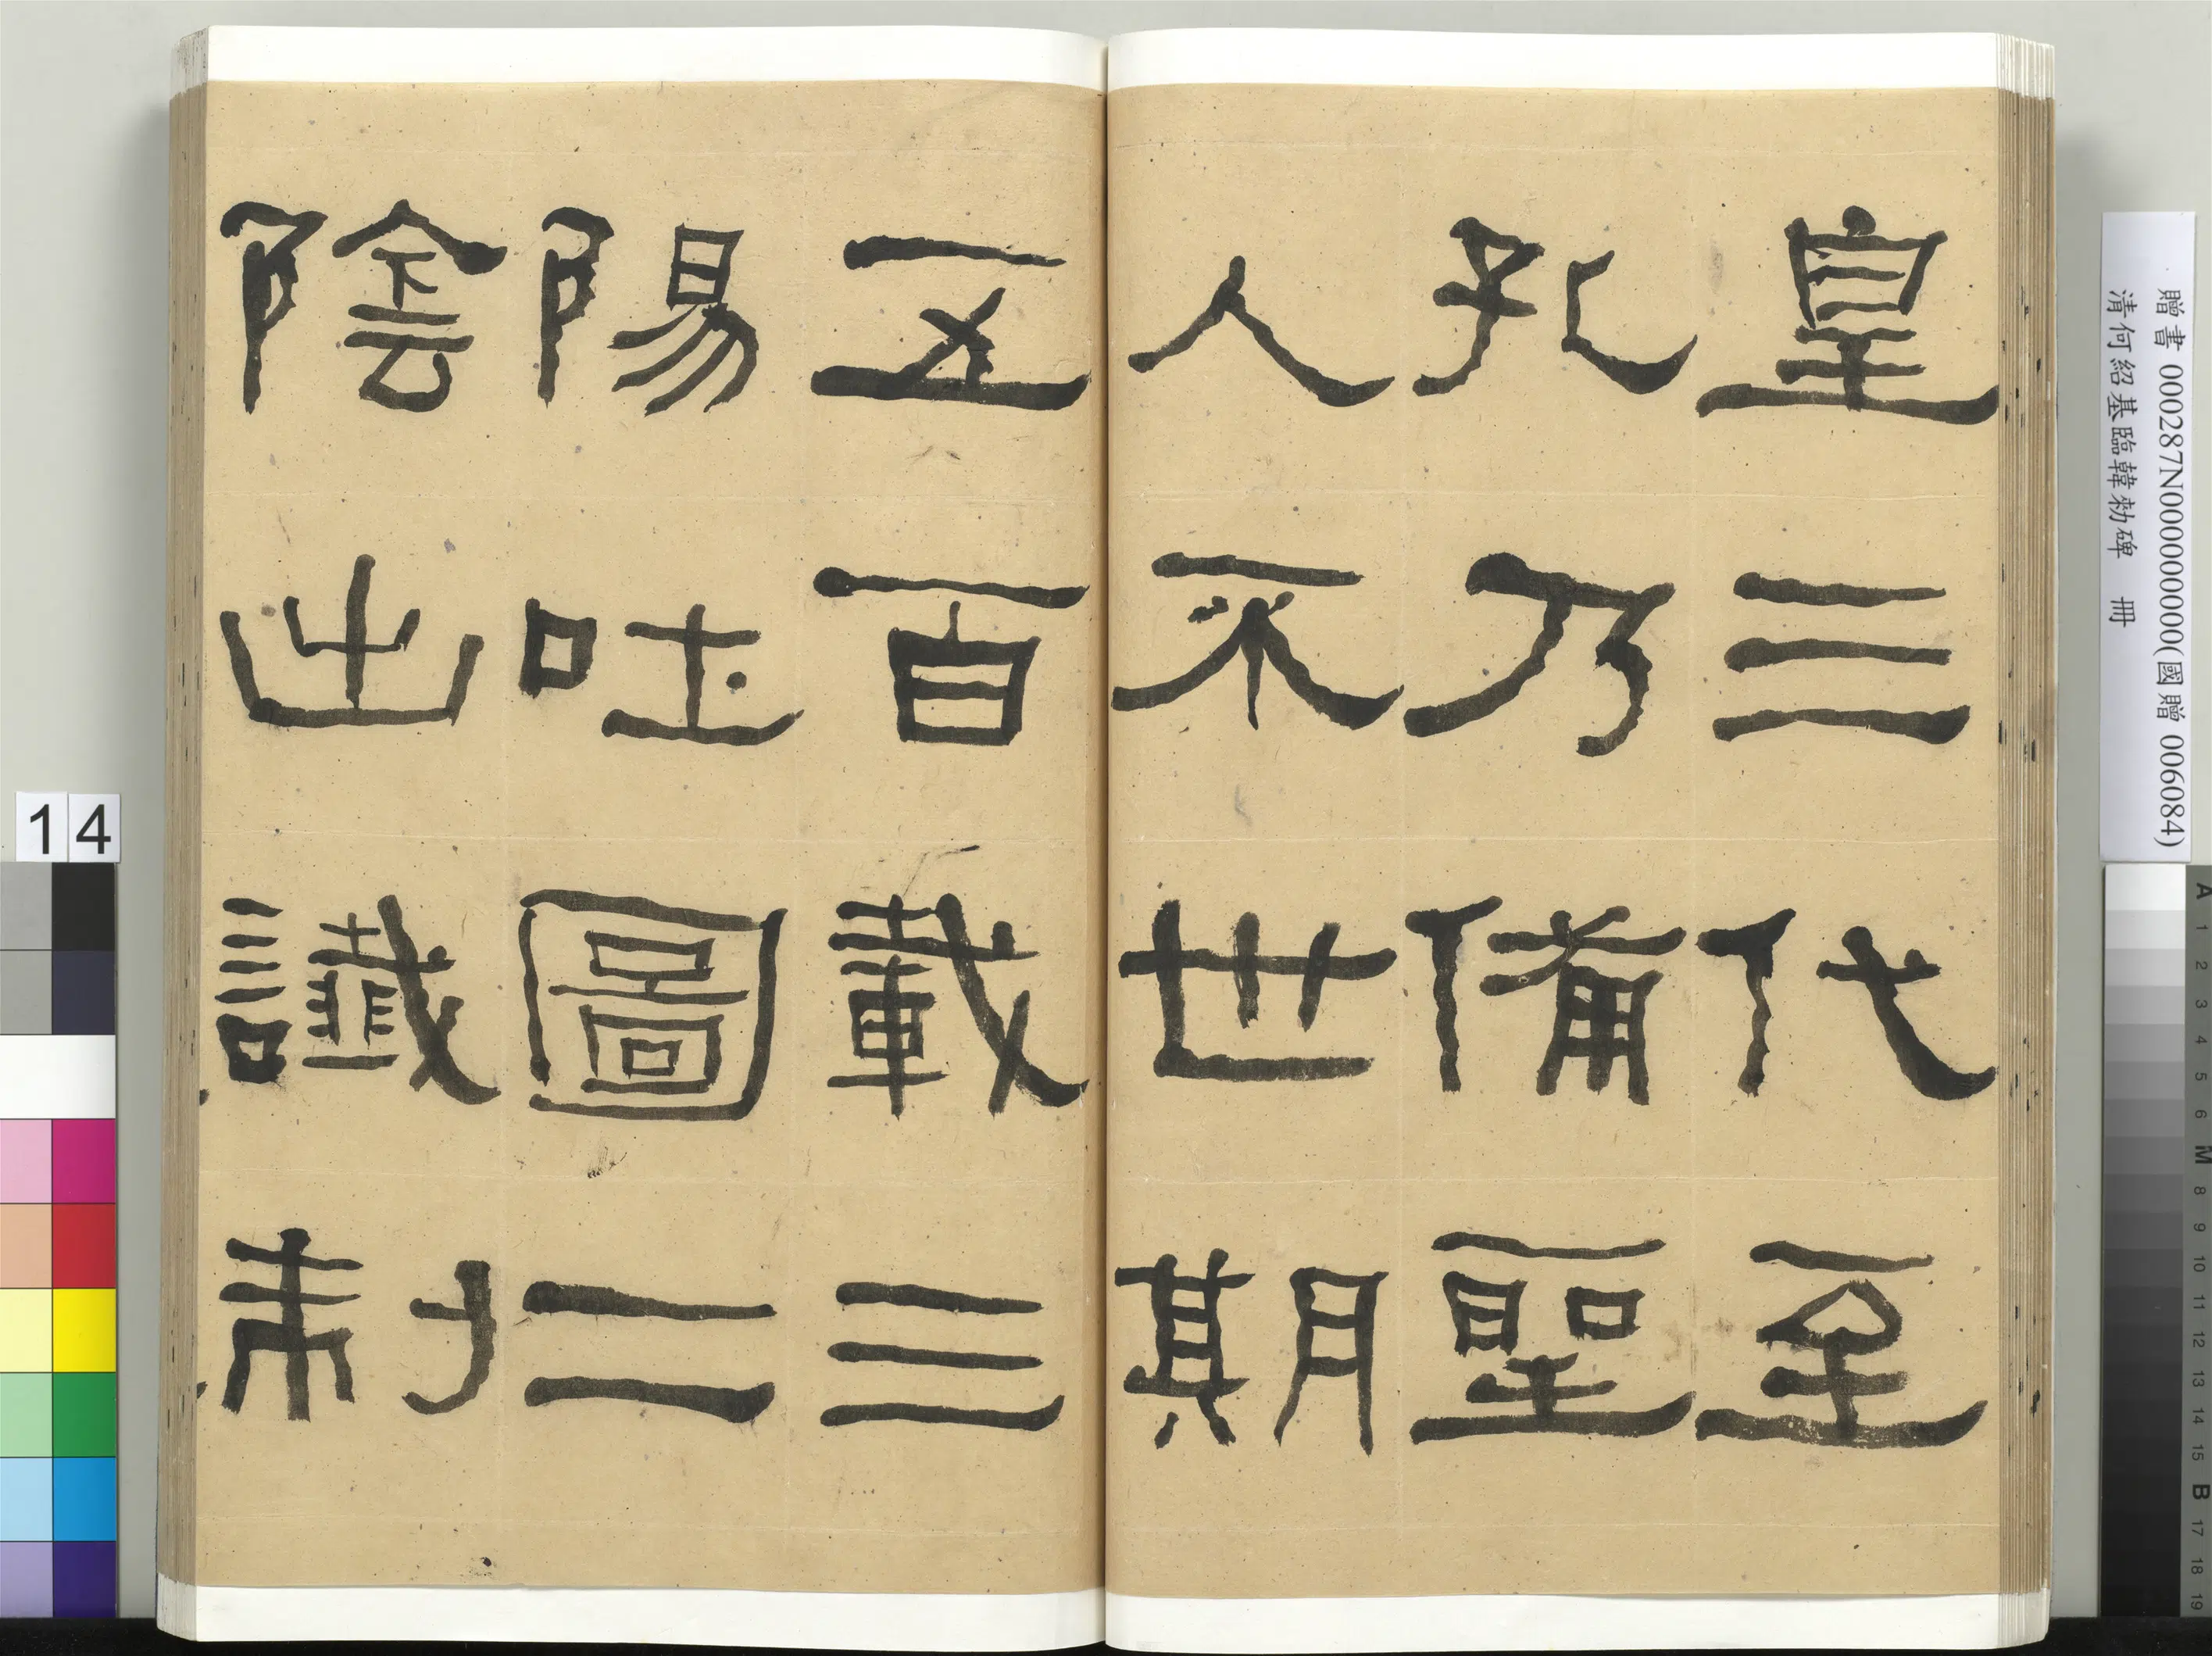 皇三代至
孔乃備聖
人不世期
五百載三
陽吐圖二
陰出讖制
贈書 000287N000000000(國贈 006084)
清何紹基臨韓勑碑 冊
14
A 1 2 3 4 5 6 M 8 9 10 11 12 13 14 15 B 17 18 19